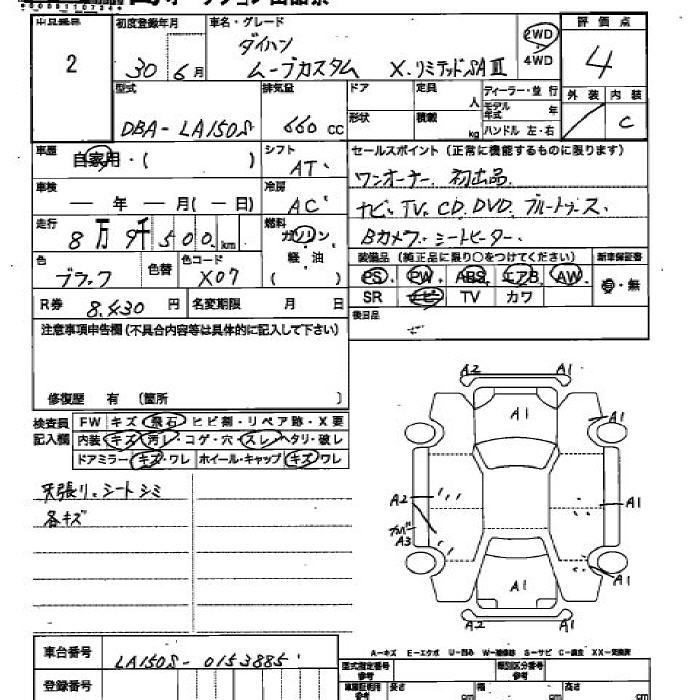 初度登録年月 車名・グレード 評価点
2 30 年 6 月 ダイハツ ムーブカスタム X.リミテッドSAⅢ 2WD 4WD 4
型式 排気量 ドア 定員 人 ディーラー・並行 外装 内装
DBA-LA150S 660 cc 形状 積載 kg モデル年式 年 ハンドル 左・右 C
車歴 自家用・( ) シフト AT セールスポイント(正常に機能するものに限ります)
車検 ー 年 ー 月(ー日) 冷房 AC ワンオーナー. 初出品
走行 8万9千500km 燃料 ガソリン 軽・油 ( ) ナビ. TV. CD. DVD. ブルートゥース.
Bカメラ. シートヒーター.
色 ブラック 色替 色コード X07 装備品(純正品に限り○をつけてください) 新車保証書
PS PW ABS エアB AW ・無
R券 8,430 円 名変期限 月 日 SR ナビ TV カワ
後日品
注意事項申告欄(不具合内容等は具体的に記入して下さい)
修復歴 有 〔箇所 〕
検査員記入欄 FW キズ・飛石・ヒビ割・リペア跡・X要
内装 キズ・汚レ・コゲ・穴・スレ・ヘタリ・破レ
ドアミラー キズ・ワレ ホイール・キャップ キズ ワレ
天張り. シートシミ
各キズ
A2 A1
A1
A1
A2 A1
カバー A3
A1 A1
A2 A2
A-キズ E-エクボ U-凹み W-補修跡 S-サビ C-腐食 XX-交換済
車台番号 LA150S-0153885
型式指定番号 参考 類別区分番号 参考
登録番号 長さ cm 幅 cm 高さ cm